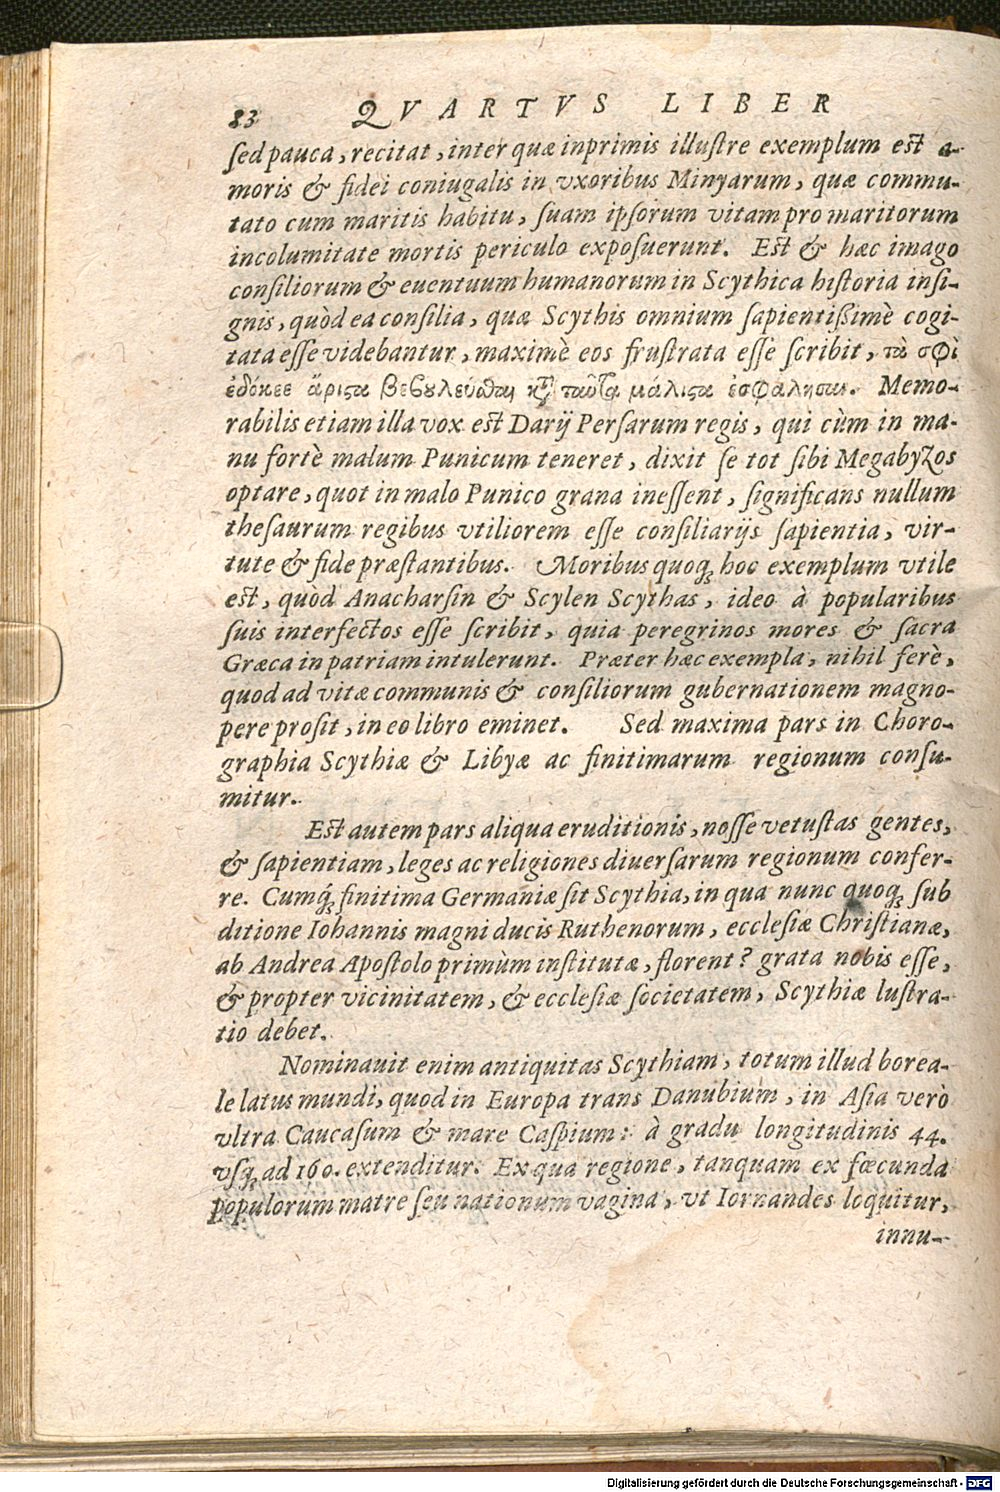 83 QVARTVS LIBER
ſed pauca, recitat, inter quæ inprimis illuſtre exemplum eſt a-
moris & fidei coniugalis in vxoribus Minyarum, quæ commu-
tato cum maritis habitu, ſuam ipſorum vitam pro maritorum
incolumitate mortis periculo expoſuerunt. Eſt & hæc imago
conſiliorum & euentuum humanorum in Scythica hiſtoria inſi-
gnis, quòd ea conſilia, quæ Scythis omnium ſapientißimè cogi-
tata eſſe videbantur, maximè eos fruſtrata eſſe ſcribit, τὰ σφὶ
ἐδόκεε ἄριϛα βεβουλεύσθαι καὶ ταῦτα μάλιϛα ἐσφάλησαν. Memo-
rabilis etiam illa vox eſt Darij Perſarum regis, qui cùm in ma-
nu fortè malum Punicum teneret, dixit ſe tot ſibi Megabyzos
optare, quot in malo Punico grana ineſſent, ſignificans nullum
theſaurum regibus vtiliorem eſſe conſiliarijs ſapientia, vir-
tute & fide præſtantibus. Moribus quoq; hoc exemplum vtile
eſt, quòd Anacharſin & Scylen Scythas, ideo à popularibus
ſuis interfectos eſſe ſcribit, quia peregrinos mores & ſacra
Græca in patriam intulerunt. Præter hæc exempla, nihil ferè,
quod ad vitæ communis & conſiliorum gubernationem magno-
pere proſit, in eo libro eminet. Sed maxima pars in Choro-
graphia Scythiæ & Libyæ ac finitimarum regionum conſu-
mitur.
Eſt autem pars aliqua eruditionis, noſſe vetuſtas gentes,
& ſapientiam, leges ac religiones diuerſarum regionum confer-
re. Cumq́; finitima Germaniæ ſit Scythia, in qua nunc quoq; ſub
ditione Iohannis magni ducis Ruthenorum, eccleſiæ Chriſtianæ,
ab Andrea Apoſtolo primùm inſtitutæ, florent? grata nobis eſſe,
& propter vicinitatem, & eccleſiæ ſocietatem, Scythiæ luſtra-
tio debet.
Nominauit enim antiquitas Scythiam, totum illud borea-
le latus mundi, quod in Europa trans Danubium, in Aſia verò
vltra Caucaſum & mare Caſpium: à gradu longitudinis 44.
vſq; ad 160. extenditur. Ex qua regione, tanquam ex fœcunda
populorum matre ſeu nationum vagina, vt Iornandes loquitur,
innu-
Digitalisierung gefördert durch die Deutsche Forschungsgemeinschaft - DFG